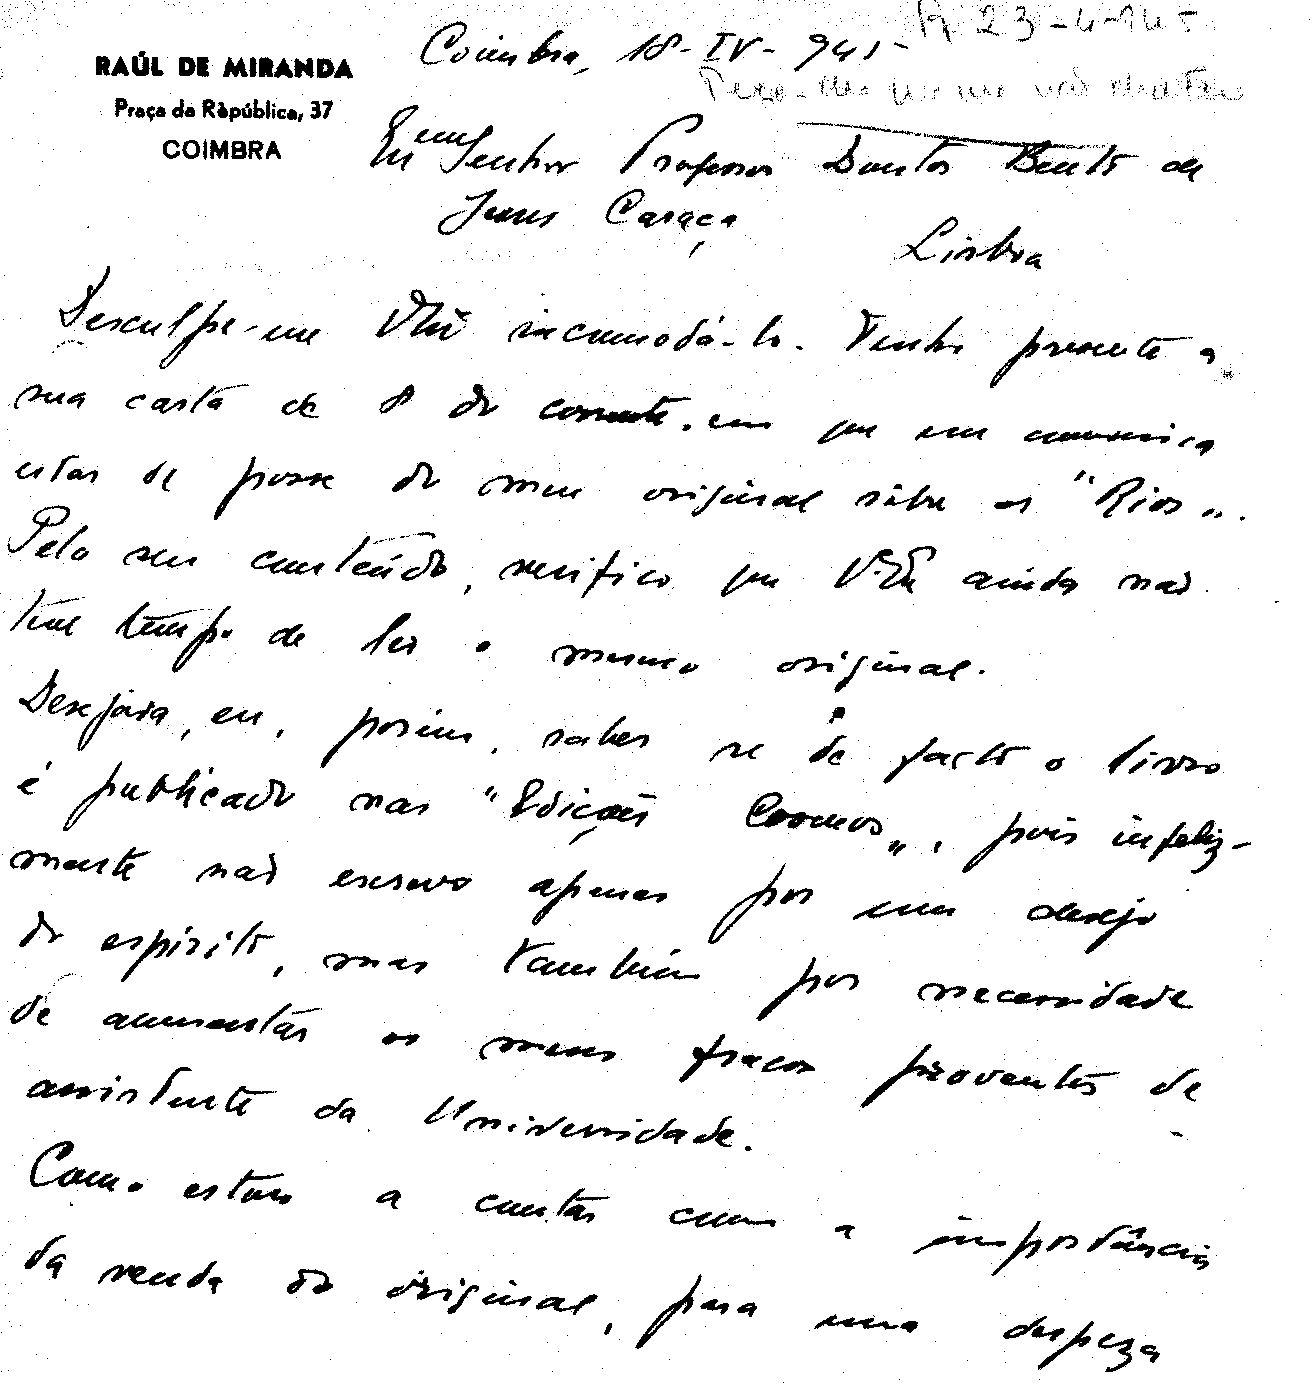 R 23-4-945
RAÚL DE MIRANDA
Praça da Rèpública, 37
COIMBRA
Coimbra, 18-IV-945-
Exmo Senhor Professor Doutor Bento de
Jesus Caraça
Lisboa
Desculpe-me Vir incomodá-lo. Tenho presente a
sua carta de 8 do corrente, em que me comunica
estar de posse do meu original sôbre os "Rios".
Pelo seu conteúdo, verifico que V. Exª ainda não
teve tempo de ler o mesmo original.
Desejava, eu, porém, saber se de facto o livro
é publicado nas "Edições Cosmos", pois infeliz-
mente não escrevo apenas por um desejo
do espírito, mas também por necessidade
de aumentar os meus fracos proventos de
assistente da Universidade.
Como estou a contar com a importância
da venda do original, para uma despeza